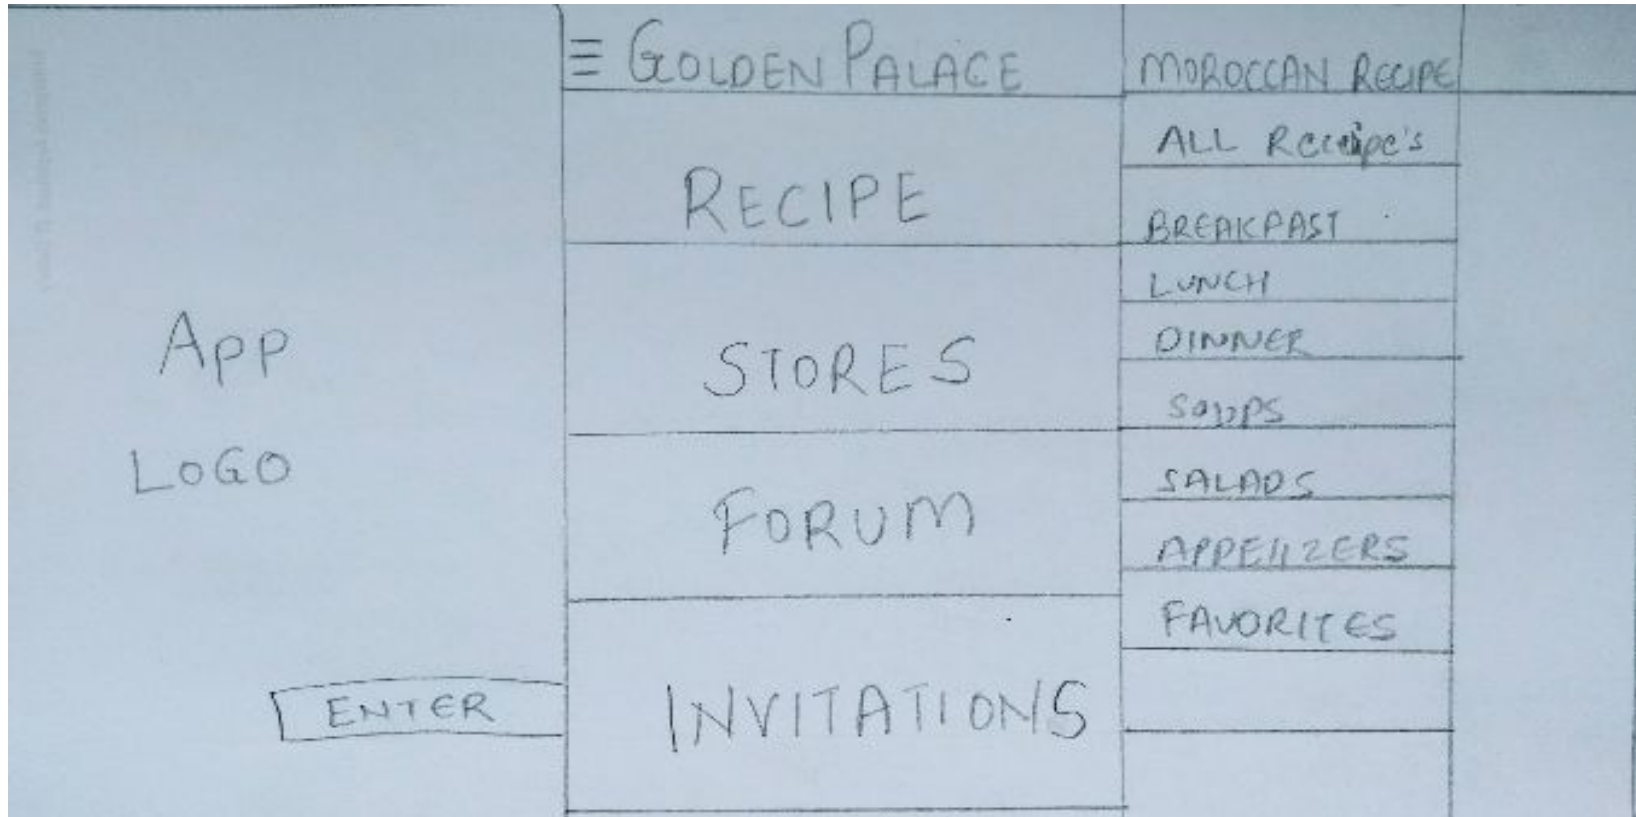 App
LOGO
ENTER
GOLDEN PALACE
RECIPE
STORES
FORUM
INVITATIONS
MOROCCAN RECIPE
ALL Receipe's
BREAKFAST
LUNCH
DINNER
SOUPS
SALADS
APPETIZERS
FAVORITES